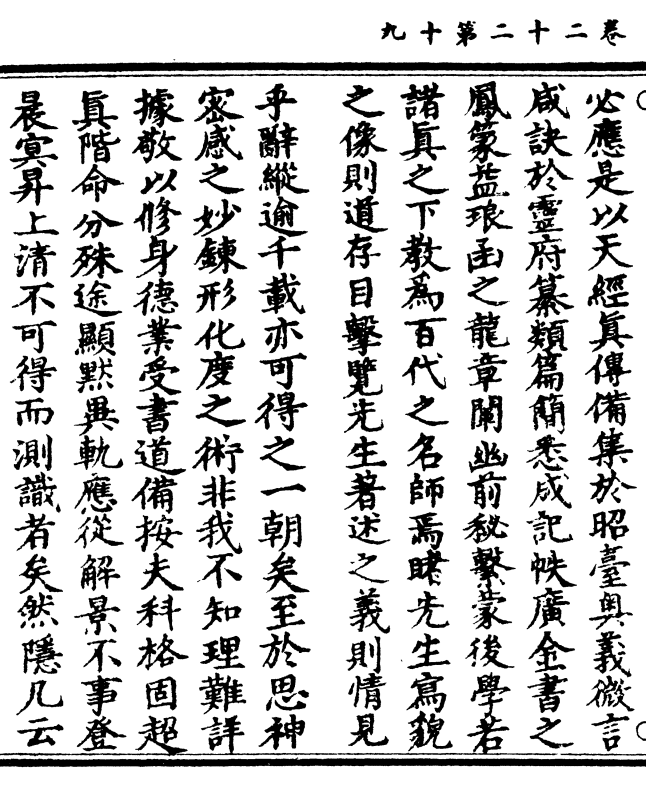 卷二十二第十九
必應是以天經眞傳備集於昭臺奥義微言
咸訣於靈府纂類篇簡悉成記帙廣金書之
鳳篆益琅函之龍章闡幽前秘繫蒙後學若
諸眞之下教為百代之名師焉睹先生寫貌
之像則道存目擊覽先生著述之義則情見
乎辭縱逾千載亦可得之一朝矣至於思神
密感之妙鍊形化度之術非我不知理難詳
據敬以修身德業受書道備按夫科格固超
眞階命分殊途顯默異軌應從解景不事登
晨冥昇上清不可得而測識者矣然隱几云